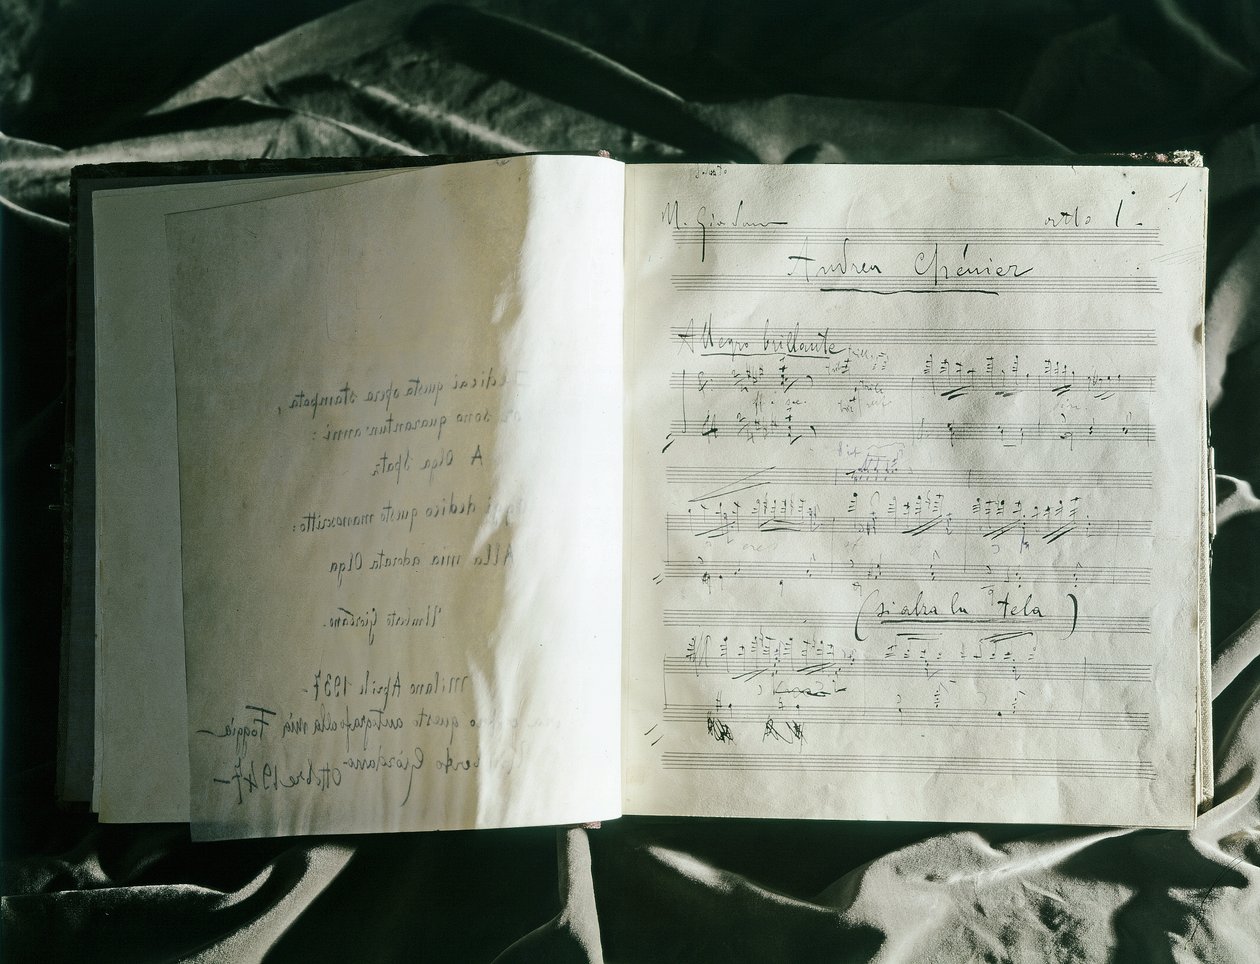 Dedicai questa opera stampata,
or sono quarantun'anni:
A Olga Spatz
oggi dedico questo manoscritto:
Alla mia adorata Olga
Umberto Giordano.
Milano Aprile 1937-
questo autografo alla mia Foggia
Umberto Giordano-
Ottobre 1947-
1
M. Giordano
atto 1.
Andrea Chénier
Allegro brillante
(si alza la tela)